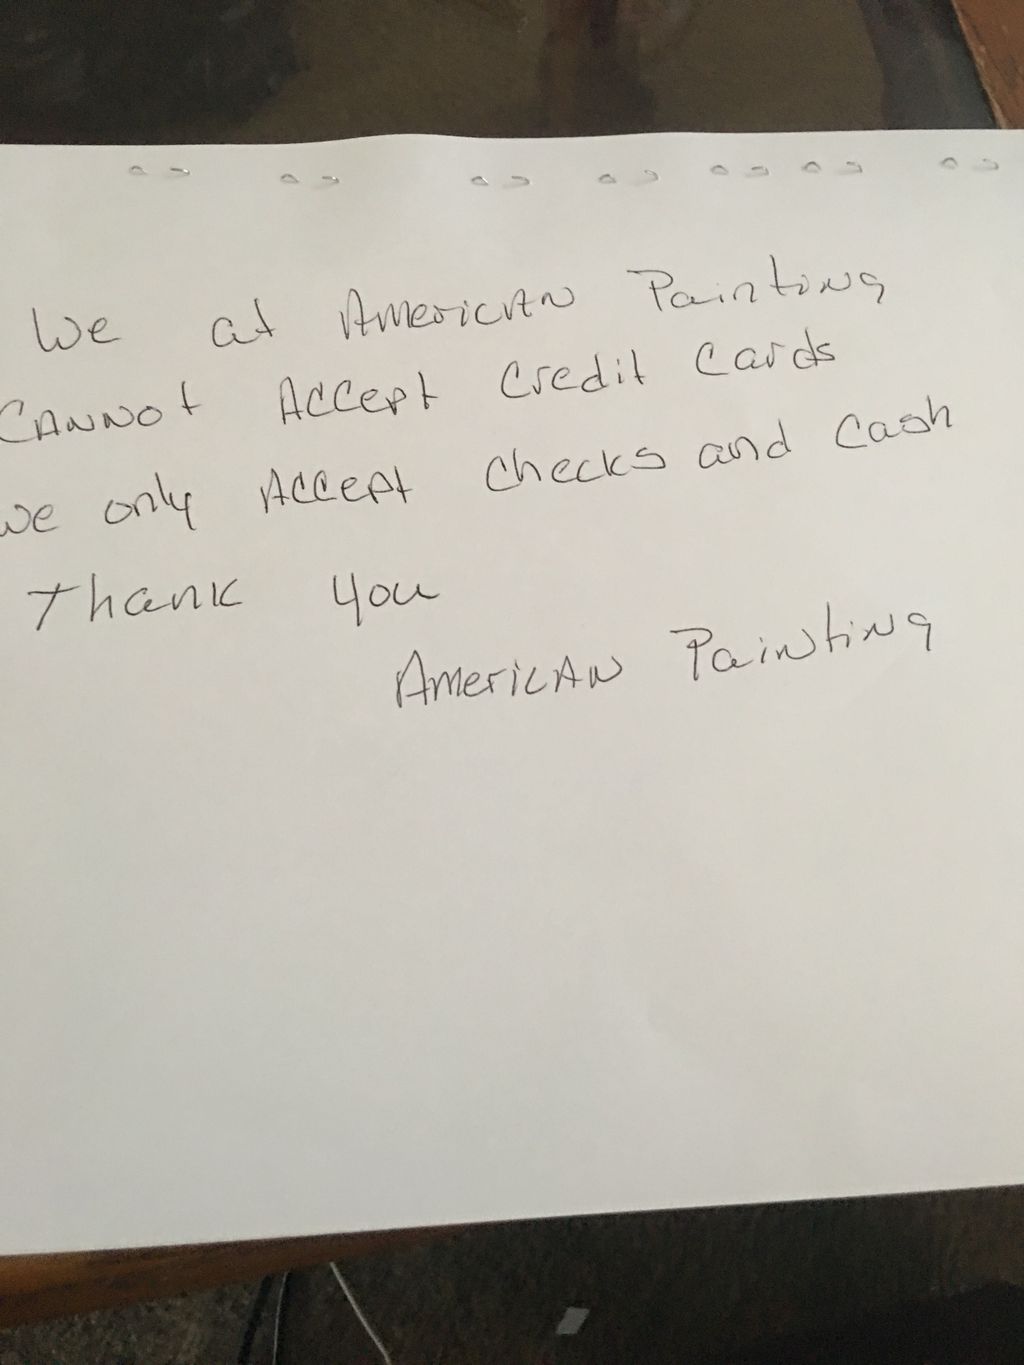 We at American Painting
Cannot Accept Credit Cards
we only Accept Checks and Cash
Thank you
American Painting